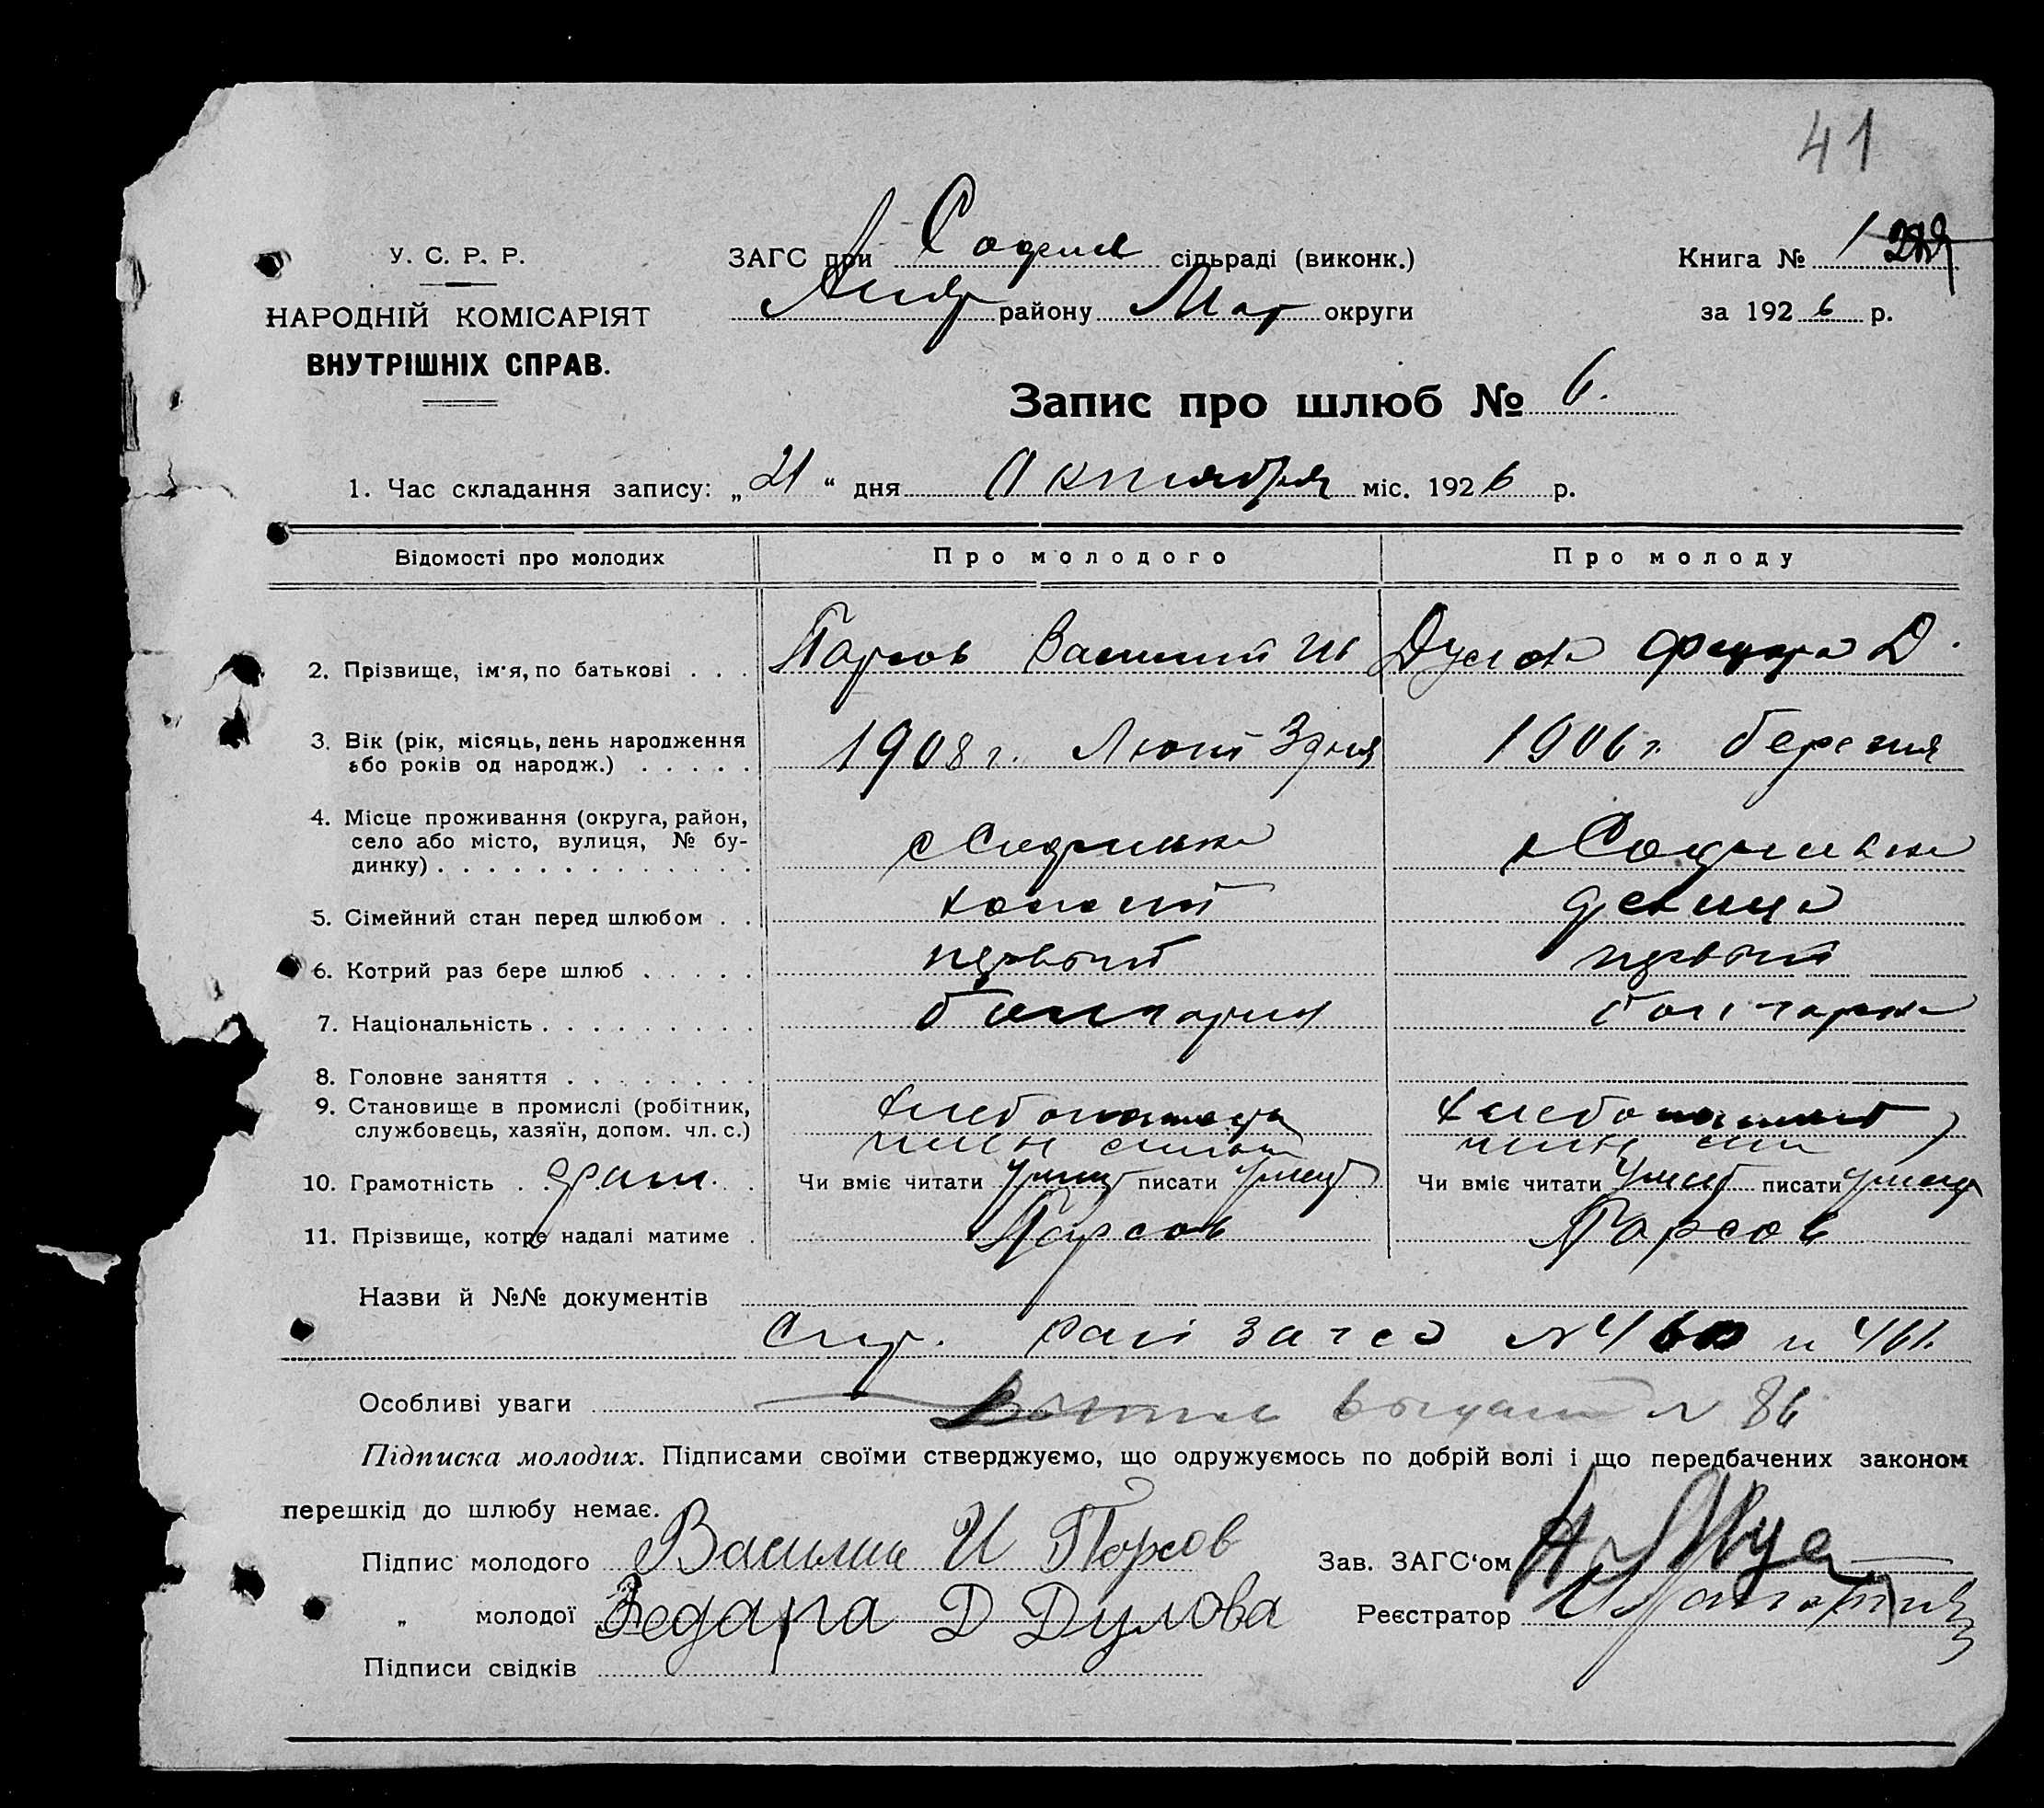 41
У. С. Р. Р.
НАРОДНІЙ КОМІСАРІЯТ
ВНУТРІШНІХ СПРАВ.
ЗАГС при сільраді (виконк.)
району Мар округи
Книга № 1
за 1926 р.
Запис про шлюб № 6.
1. Час складання запису: „21“ дня Октября міс. 1926 р.
Відомості про молодих Про молодого Про молоду
2. Прізвище, ім'я, по батькові . . . Парсов Василий Ив Дулова Федора Д.
3. Вік (рік, місяць, день народження 1908 г. Лютий 3 дня 1906 г. березня
або років од народж.) . . . . .
4. Місце проживання (округа, район,
село або місто, вулиця, № бу- с Софиевка с Софиевка
динку) . . . . . . . . . . . . .
5. Сімейний стан перед шлюбом . . холостий девица
6. Котрий раз бере шлюб . . . . . первый первый
7. Національність . . . . . . . . . болгарин болгарка
8. Головне заняття . . . . . . . .
9. Становище в промислі (робітник, хлебопашец хлебопашец
службовець, хазяїн, допом. чл. с.) член семьи член сем
10. Грамотність . . грам. . . Чи вміє читати Умеет писати Умеет Чи вміє читати Умеет писати Умеет
11. Прізвище, котре надалі матиме . Парсов Парсов
Назви й №№ документів
Спр. загса № 460 и 461.
Особливі уваги выдан № 86
Підписка молодих. Підписами своїми стверджуємо, що одружуємось по добрій волі і що передбачених законом
перешкід до шлюбу немає.
Підпис молодого Василий И Парсов Зав. ЗАГС'ом
„ молодої Федара Д Дулова Реєстратор
Підписи свідків